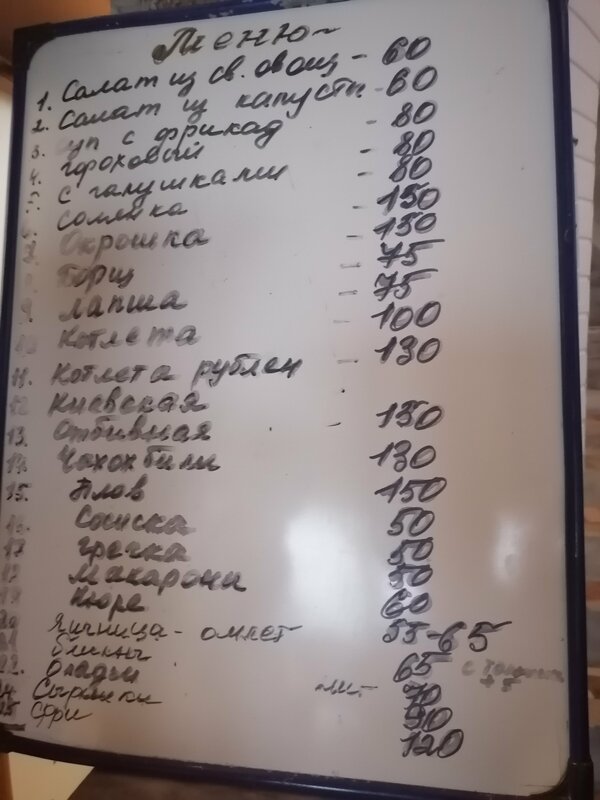 Меню
1. Салат из св. овощ - 60
2. Салат из капусты - 60
3. суп с фрикад - 80
4. гороховый - 80
с галушками - 80
Солянка - 150
Окрошка - 150
Борщ - 75
9. Лапша - 75
10 Котлета - 100
11. Котлета рублен - 130
12 Киевская
13. Отбивная 150
14. Чахохбили 130
15. Плов 150
16. Сосиска 50
17 гречка 50
Макароны 50
Пюре 60
20 Яичница - омлет 55-65
21 блины 65
22. Оладьи 70
24 Сырники 90
25 Фри 120